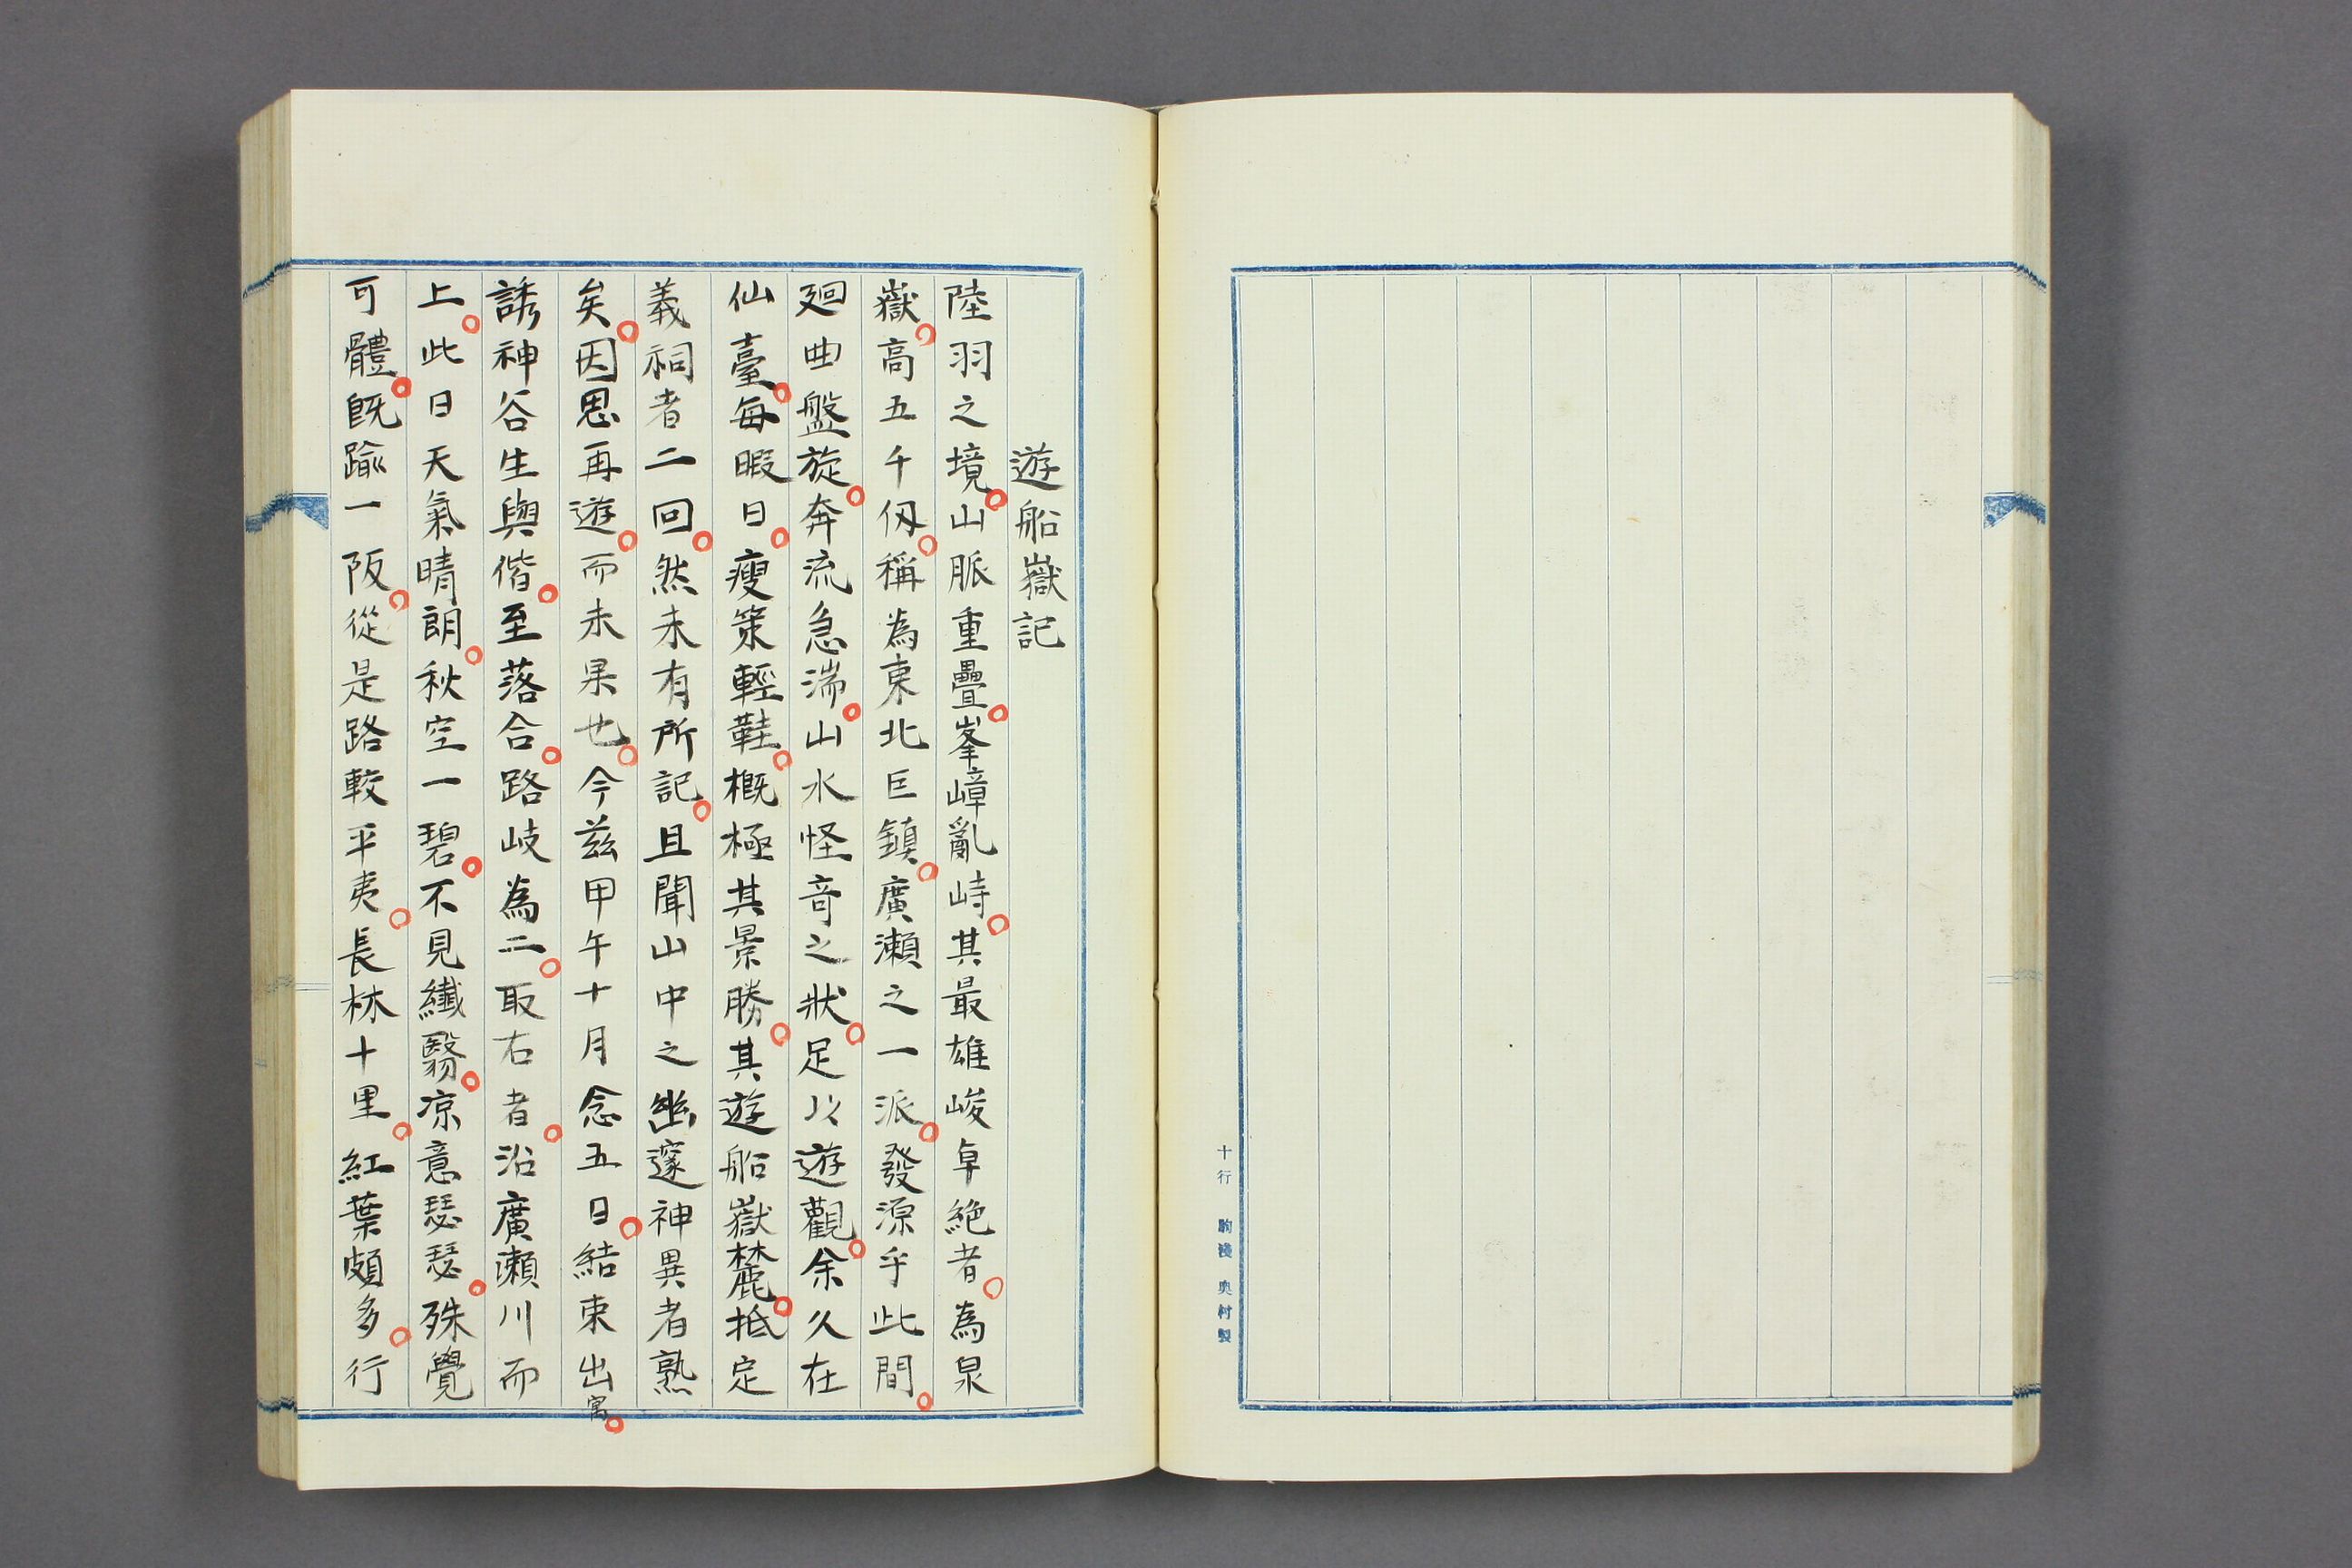 遊船嶽記
陸羽之境。山脈重疊。峯嶂亂峙。其最雄峻卓絶者。為泉
嶽。高五千仭。稱為東北巨鎮。廣瀬之一派。發源乎此間。
廻曲盤旋。奔流急湍。山水怪奇之狀。足以遊觀。余久在
仙臺。每暇日。瘦策輕鞋。概極其景勝。其遊船嶽麓。抵定
義祠者二回。然未有所記。且聞山中之幽邃神異者熟
矣。因思再遊。而未果也。今茲甲午十月念五日。結束出寓。
誘神谷生與偕。至落合。路岐為二。取右者。沿廣瀬川而
上。此日天氣晴朗。秋空一碧。不見纖翳。凉意瑟瑟。殊覺
可體。既踰一阪。從是路較平夷。長林十里。紅葉頗多。行
十行 駒淺 奥村製